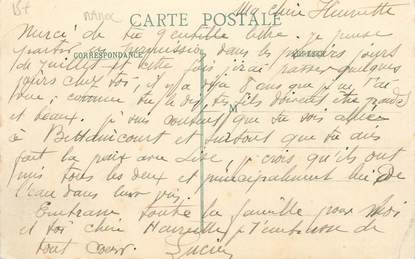 15t
CARTE POSTALE
Ma chère Henriette
Merci de ta gentille lettre. Je pense
CORRESPONDANCE
partir en permission dans les premiers jours
de juillet et cette fois j'irai passer quelques
jours chez toi, il y a déjà 8 ans que je ne t'ai
vue; comme tu le dis, tes fils doivent être grands
M
et beaux. je suis content que tu sois allée
à Bettancourt et surtout que tu aies
fait la paix avec Lise, je crois qu'ils ont
mis tous les deux et principalement lui de
l'eau dans leur vin.
Embrasse toute la famille pour moi
et toi chère Henriette je t'embrasse de
tout coeur. Lucien